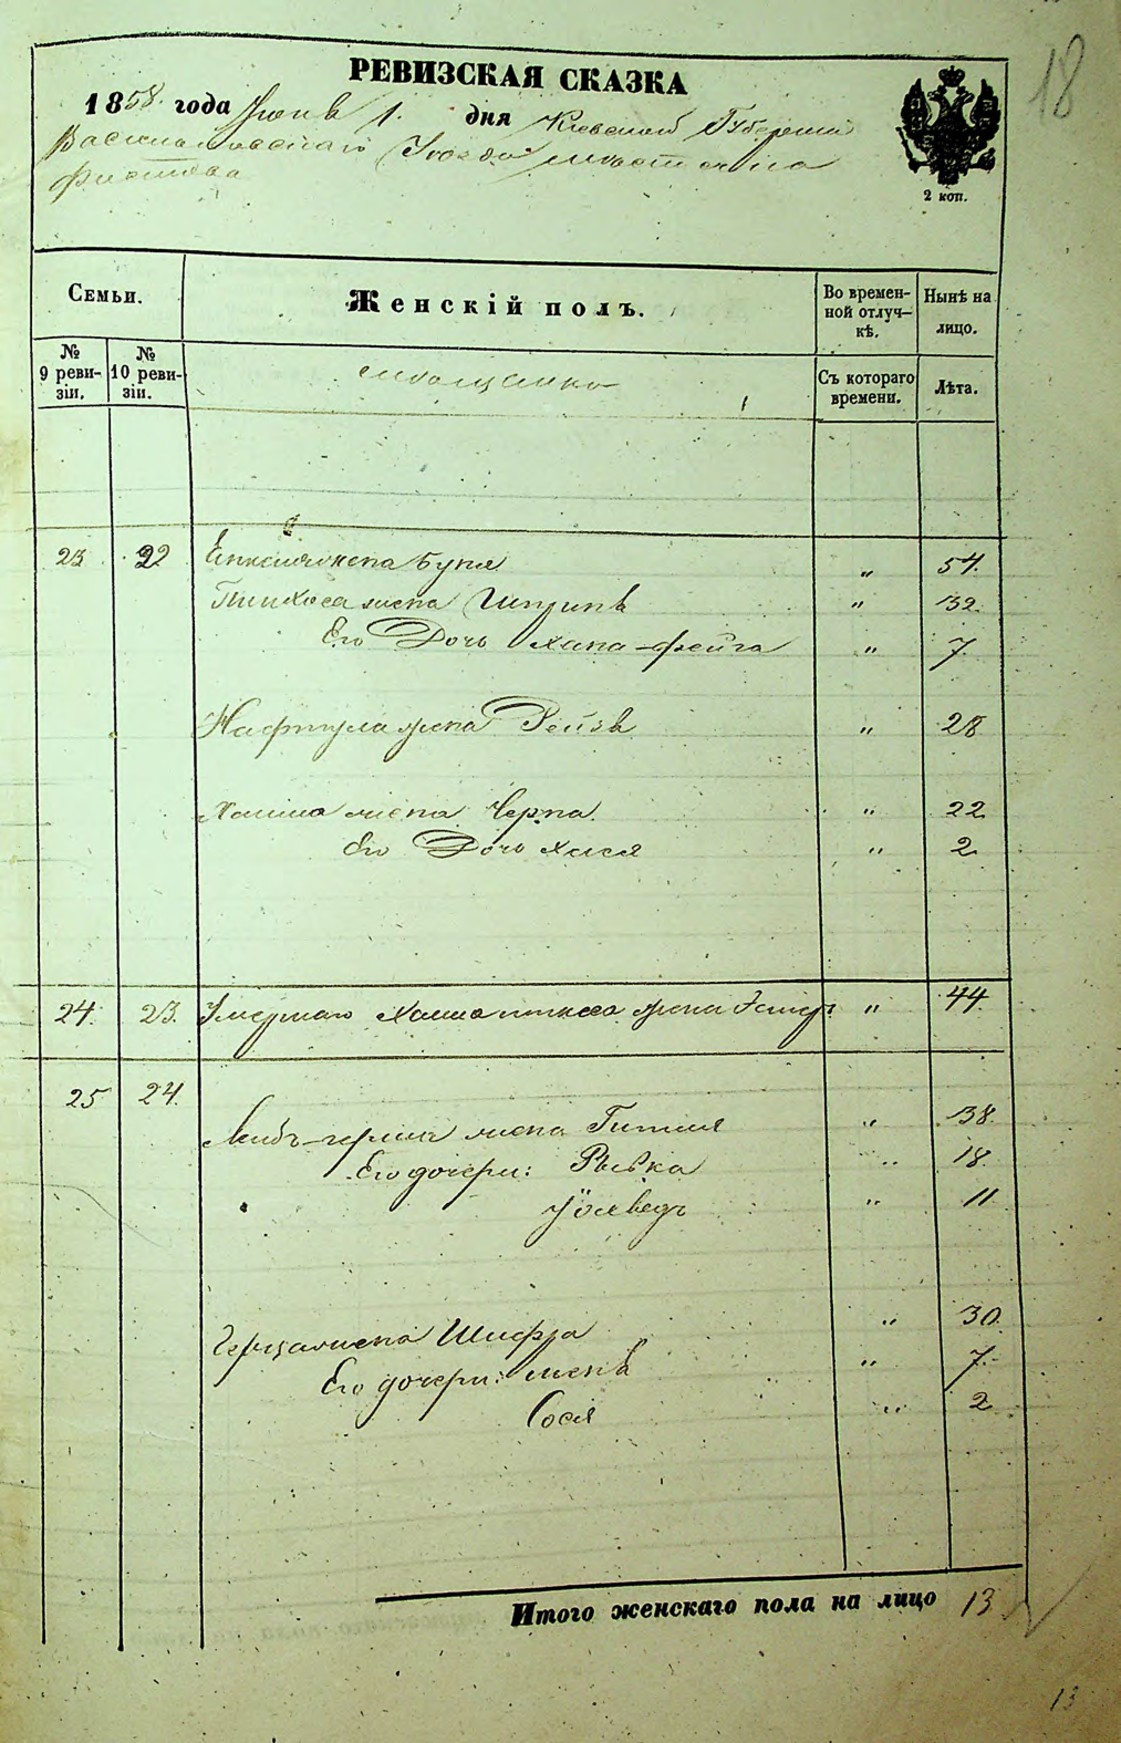 18
РЕВИЗСКАЯ СКАЗКА
1858. года Июня 1. дня Киевской Губернии
Васильковского Уезда местечка
Фастова
2 коп.
Семьи.
Женскій полъ.
Во времен-
ной отлуч-
кѣ.
Нынѣ на
лицо.
№
9 реви-
зіи.
№
10 реви-
зіи.
Съ котораго
времени.
Лѣта.
23 22 жена Буня " 54.
Пинхоса жена " 32.
Его Дочь Хана-Фейга " 7.
Нафтула жена Рейзя " 28
Хаима жена Черна. " 22
Его Дочь Хася " 2
24. 23. Умершаго Хаима жена Эстер " 44
25 24.
жена Гитля " 38.
Его дочери: Рывка " 18.
" 11
Герша жена Шифра " 30.
Его дочери: " 7.
Сося " 2
Итого женскаго пола на лицо 13
13